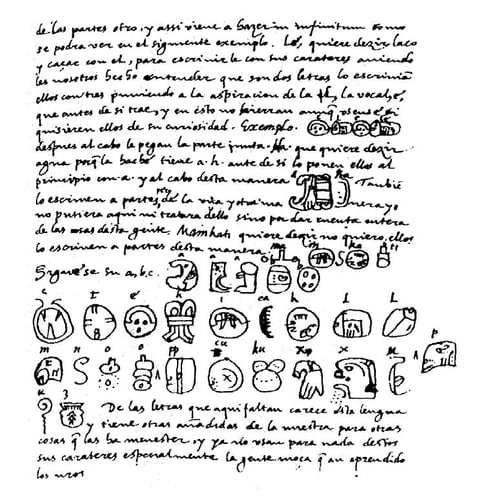 de las partes otro, y assi viene a hazer in infinitum como
se podra ver en el siguiente exemplo. Lé, quiere dezir laço
y caçar con el, para escrivirle con sus carateres aviendo
les nosotros hecho entender que son dos letras lo escrivian
ellos con tres puniendo a la aspiracion de la l, la vocal, é,
que antes de si trae, y en esto no hierran
quisieren ellos de su curiosidad. Exemplo.
despues al cabo le pegan la parte junta. Ha que quiere dezir
agua porq la haché tiene a. h. ante de si lo ponen ellos al
principio con a. y al cabo desta manera a ha Tambiē
lo escriven a partes de la una y otra manera yo
no pusiera aqui ni tratara dello sino por dar cuenta entera
de las cosas desta gente. Mainkati quiere dezir no quiero, ellos
lo escriven a partes desta manera. ma i n ka ti
Siguese su a, b, c. a a a b b
c t é h i ca k l l
m n o o pp cu ku x x u p
u z De las letras que aqui faltan carece esta lengua
y tiene otras añadidas de la nuestra para otras
cosas q las ha menester, y ya no usan para nada destos
sus carateres especialmente la gente moça q an aprendido
los nros